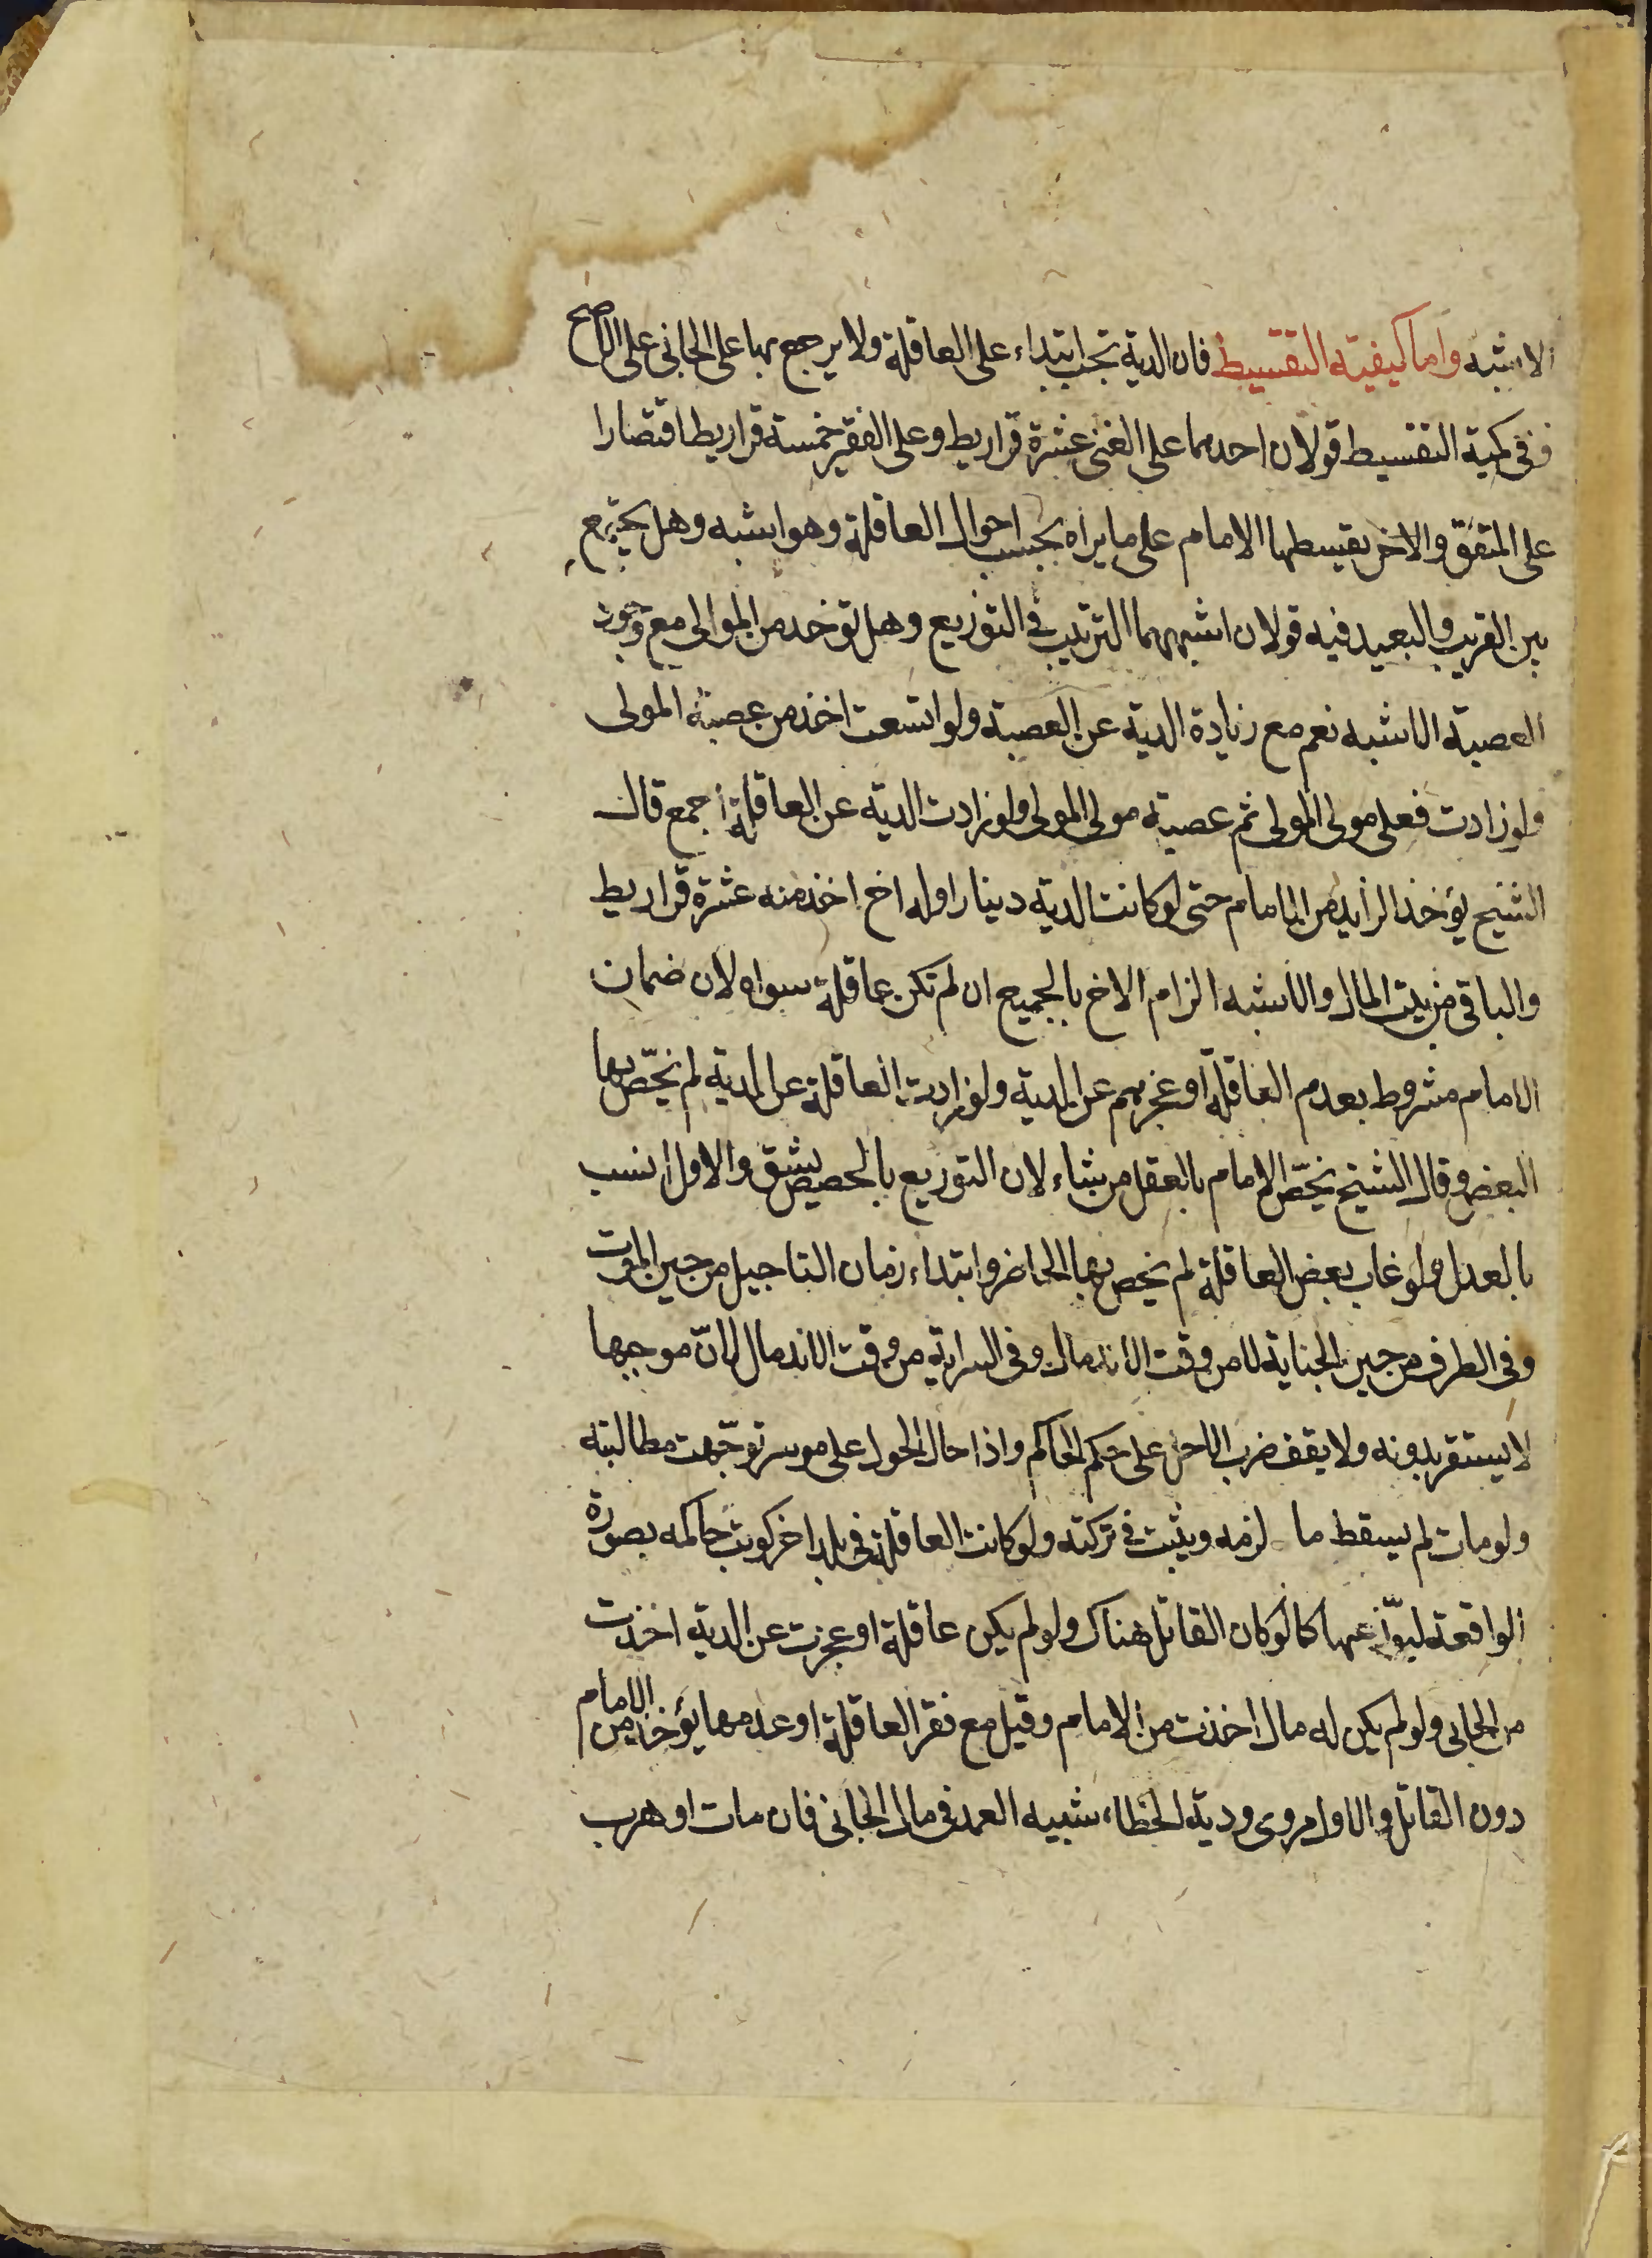 الاشبه واما كيفيته التقسيط فان الدية تجب ابتداء على العاقلة ولا يرجع بها على الجانى على الاصح
ففى كمية التقسيط قولان احدهما على الغنى عشرة قراريط وعلى الفقير خمسة قراريط اقتصارا
على المتفق والاخر يقسطها الامام على ما يراه بحسب احوال العاقلة وهو اشبه وهل يجمع
بين القريب والبعيد فيه قولان اشبههما الترتيب فى التوزيع وهل توخذ من الموالى مع وجود
العصبة الاشبه نعم مع زيادة الدية عن العصبة ولو اتسعت اخذ من عصبة المولى
ولو زادت فعلى مولى المولى ثم عصبة مولى المولى ولو زادت الدية عن العاقلة اجمع قال
الشيخ يؤخذ الزايد من الامام حتى لو كانت الدية دينارا وله اخ اخذ منه عشرة قراريط
والباقى من بيت المال والاشبه الزام الاخ بالجميع ان لم تكن عاقلة سواه لان ضمان
الامام مشروط بعدم العاقلة او عجزهم عن الدية ولو زادت العاقلة عن الدية لم نخّص بها
البعض وقال الشيخ يخّص الامام بالعقل من شاء لان التوزيع بالحصص يشق والاول انسب
بالعدل ولو غاب بعض العاقلة لم يخص بها الحاضر وابتداء زمان التاجيل من حين الموت
وفى الطرف من حين الجناية لا من وقت الاندمال وفى السراية من وقت الاندمال لانّ موجبها
لا يستقر بدونه ولا يقف ضرب الاجل على حكم الحاكم واذا حال الحول على موسر توجّهت مطالبته
ولو مات لم يسقط ما لزمه ويثبت فى تركته ولو كانت العاقلة فى بلد اخر كوتب حاكمه بصورة
الواقعة ليوّزعها كما لو كان القاتل هناك ولو لم يكن عاقلة او عجزت عن الدية اخذت
من الجانى ولو لم يكن له مال اخذت من الامام وقيل مع فقر العاقلة او عدمها يؤخذ من الامام
دون القاتل والاول مروى ودية الخطاء شبيه العمد فى مال الجانى فان مات او هرب